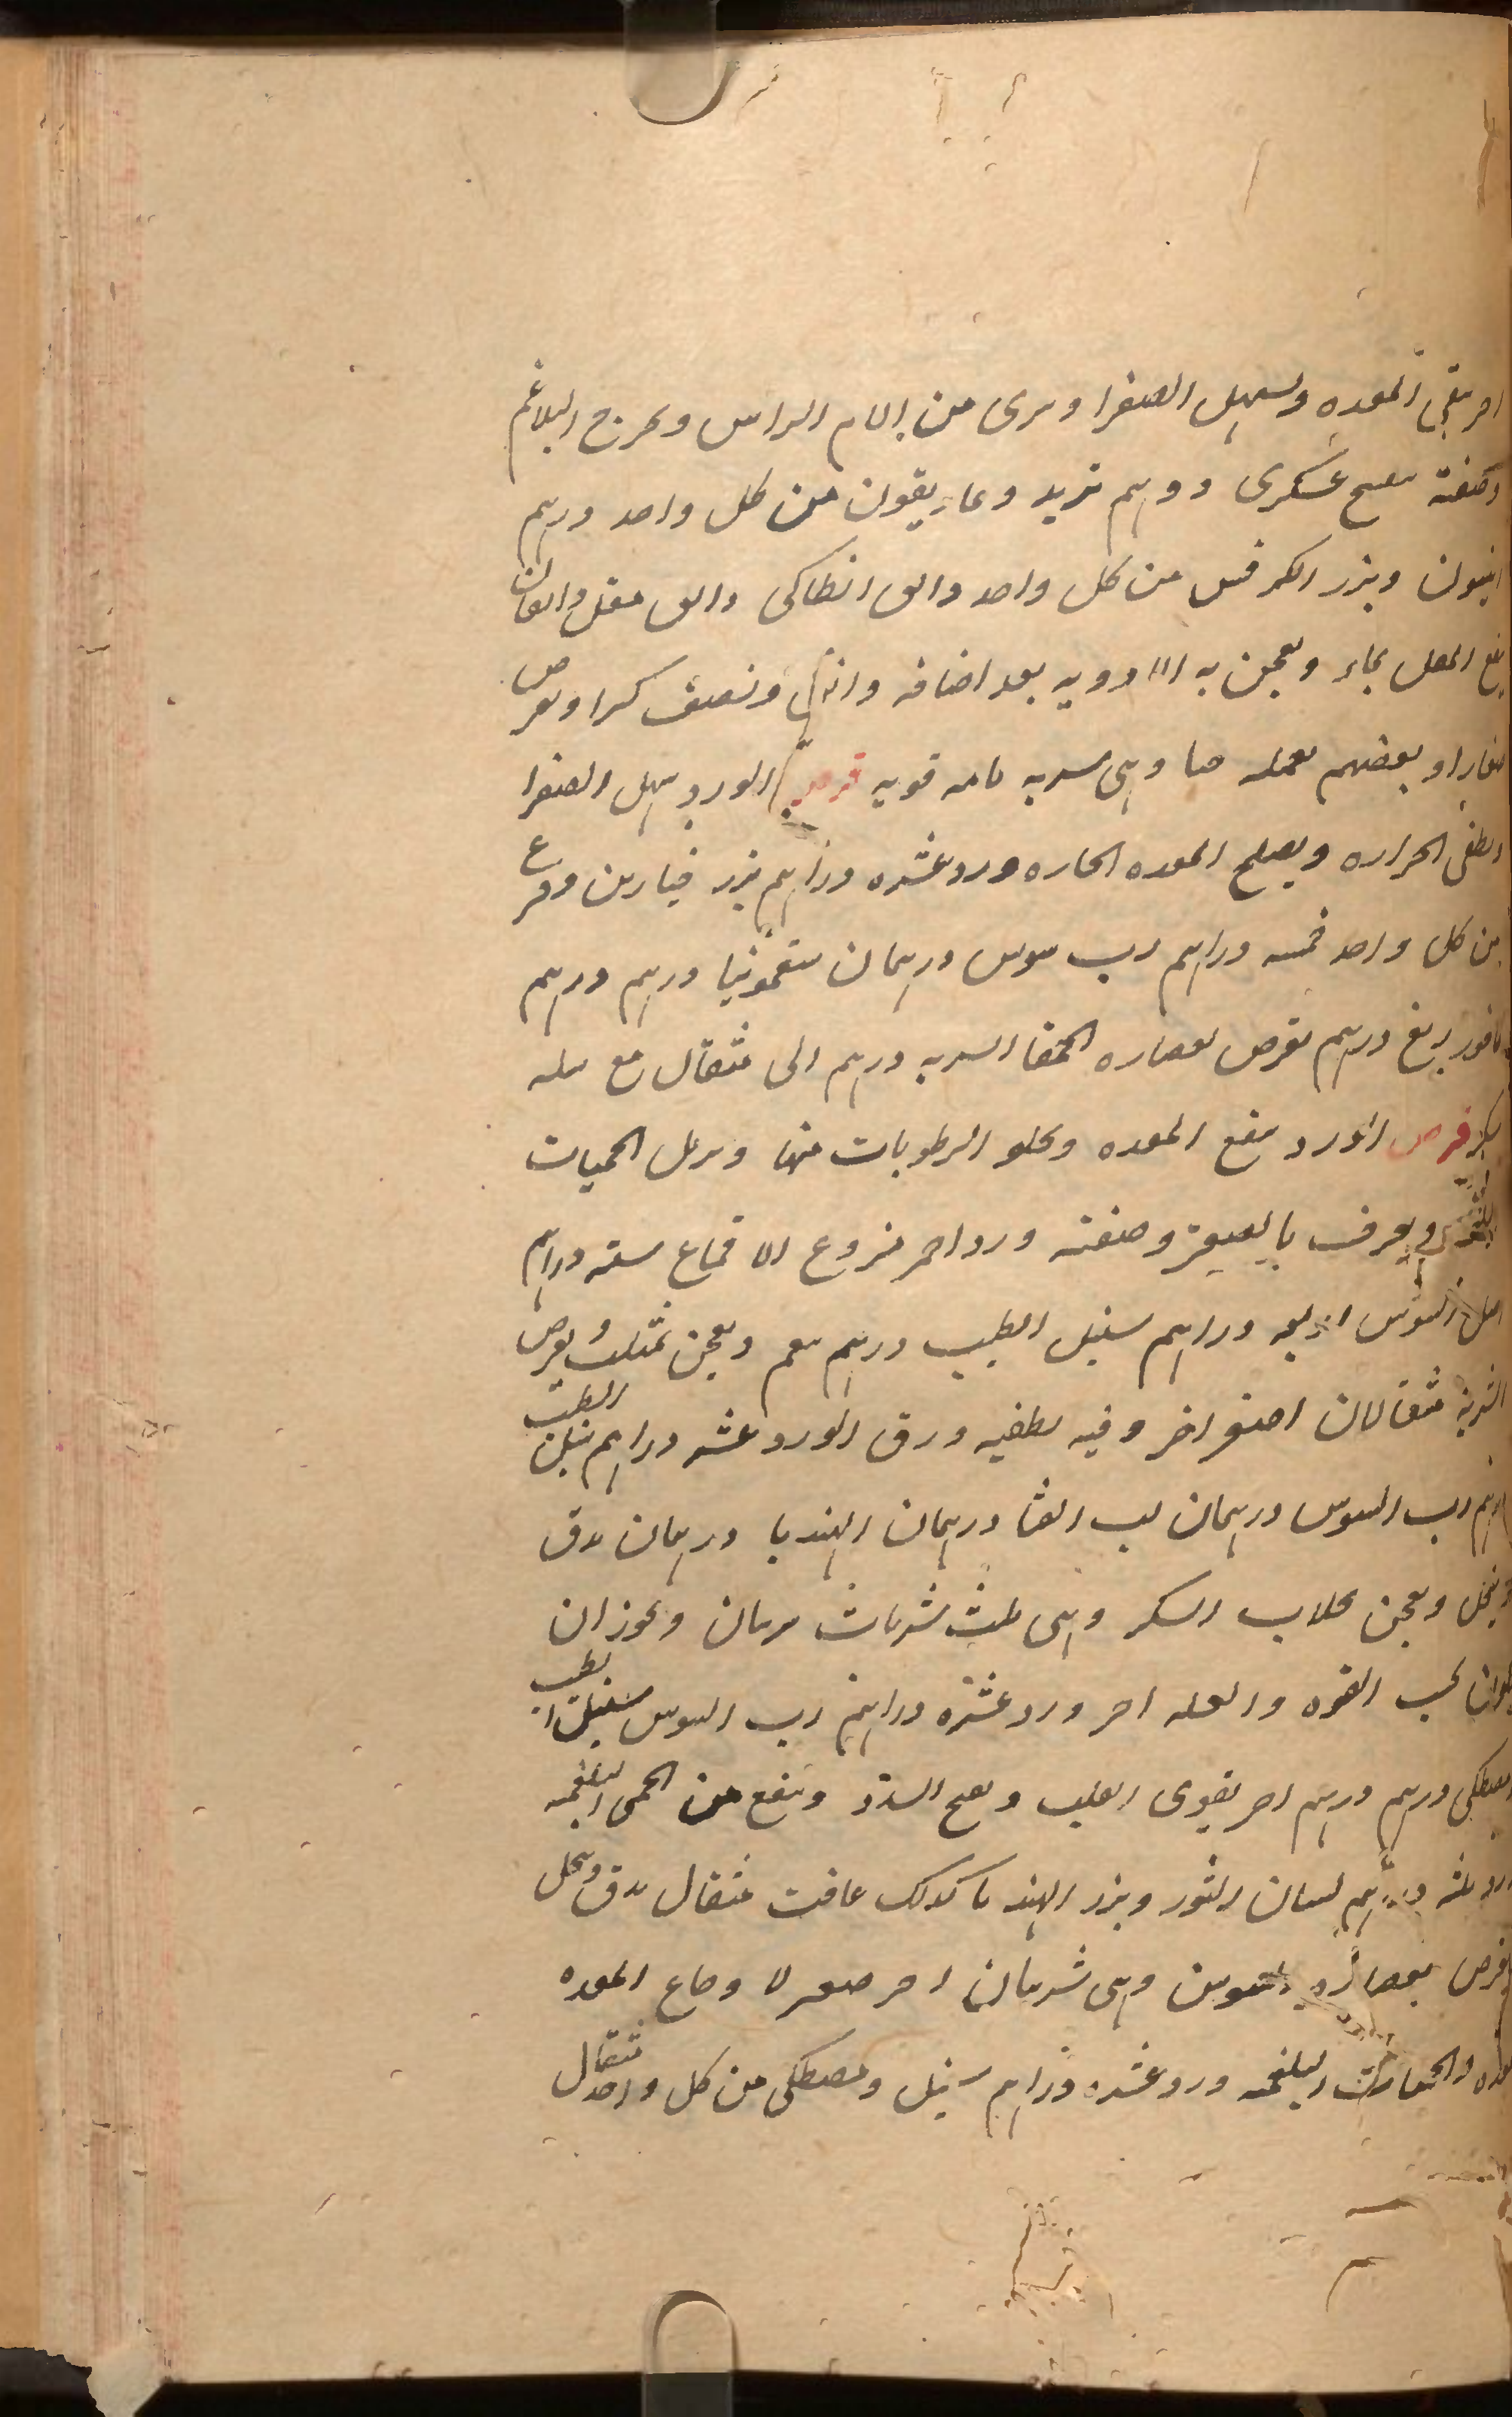 اخر ينقى المعده ويسهل الصفرا ويبرى من الام الراس ويخرج البلاغم
وصنفته عسكرى درهم تربد وغاريقون من كل واحد درهم
انيسون وبزر الكرفس من كل واحد دانق انطاكى دانق مقل دانقان
ينقع المقل بماء ويعجن به الادويه بعد اضافه ونصف ويقرص
صغارا وبعضهم يعمله حبا وهى شربه تامه قويه قرص الورد يسهل الصفرا
ويطفى الحراره ويصلح المعده الحاره ورد عشره دراهم بزر خيارين وقرع
من كل واحد خمسه دراهم رب سوس درهمان سقمونيا درهم درهم
كافور ربع درهم يقرص بعصاره الحمقا الشربه درهم الى مثقال مع مثله
سكر قرص الورد ينفع المعده ويجلو الرطوبات منها ويزيل الحميات
البلغمى ويعرف وصنفته ورد احمر منزوع الاقماع سته دراهم
اصل السوس اربعه دراهم سنبل الطيب درهم ينعم ويعجن بمثلث ويقرص
الشربة مثقالان اصغر اخر وفيه تطفيه ورق الورد عشر دراهم سنبل الطيب
درهم رب السوس درهمان لب القثا درهمان الهندبا درهمان يدق
وينخل ويعجن بجلاب السكر وهى ثلث شربات ويجوز ان
بحسب القوه والعله اخر ورد عشره دراهم رب السوس سنبل الطيب
مصطكى درهم درهم اخر يقوى القلب ويفتح السدد وينفع من الحمى البلغميه
ورد ثلثه دراهم لسان الثور وبزر الهندبا كذلك غافت مثقال يدق وينخل
ويقرص بعصاره وهى شربتان اخر لاوجاع المعده
والحميات البلغميه ورد عشره دراهم سنبل ومصطكى من كل واحد مثقال